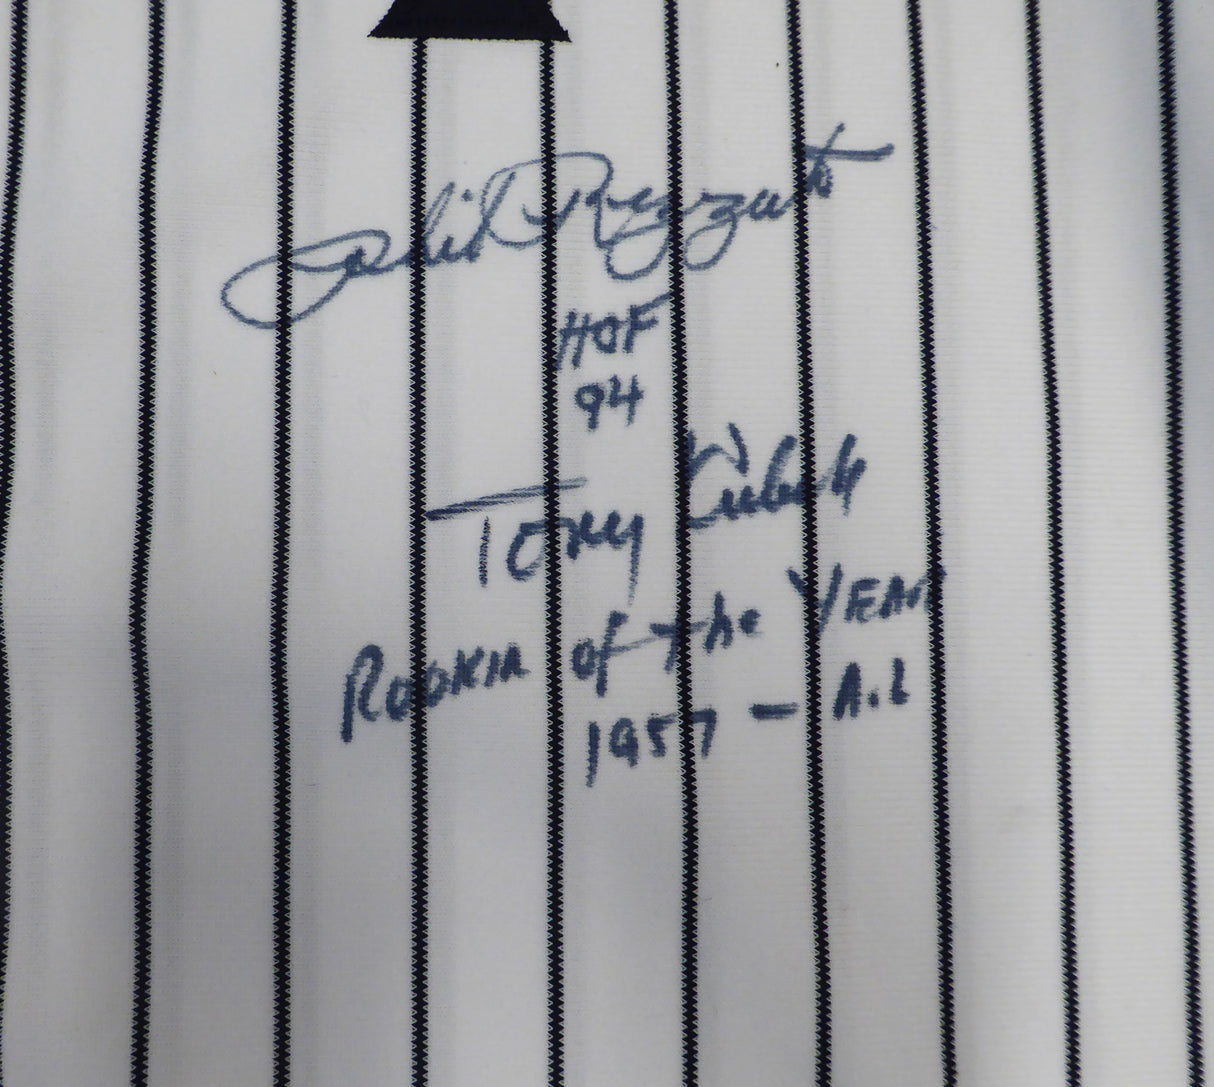 Phil Rizzuto
HOF
94
Tony Kubek
Rookie of the YEAR
1957 - A.L